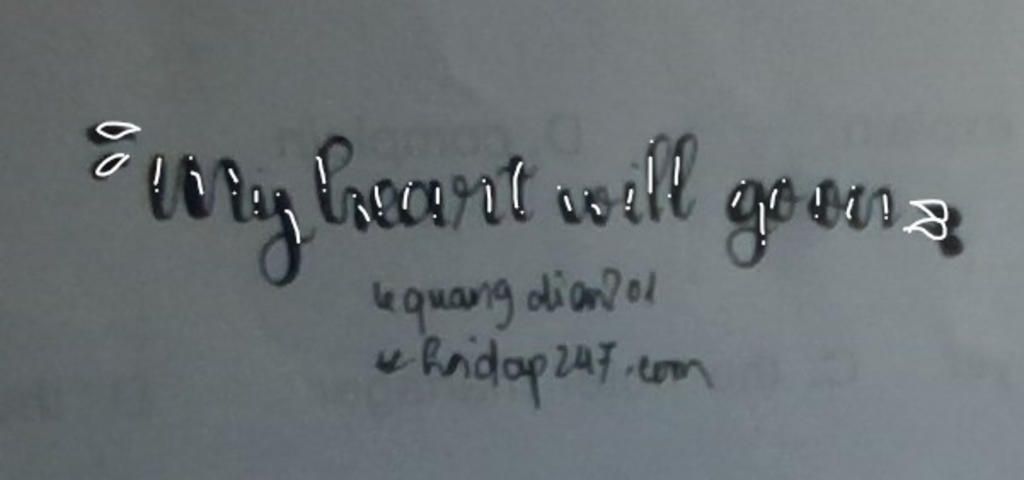 "My heart will go on"
quangdian201
hoidap247.com